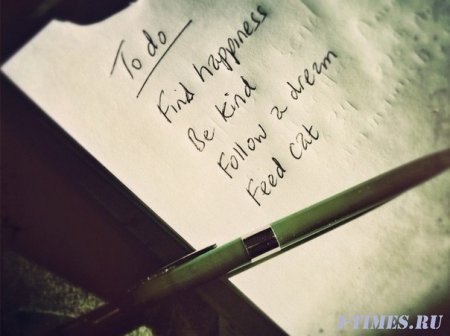 To do
Find happiness
Be kind
Follow a dream
Feed cat